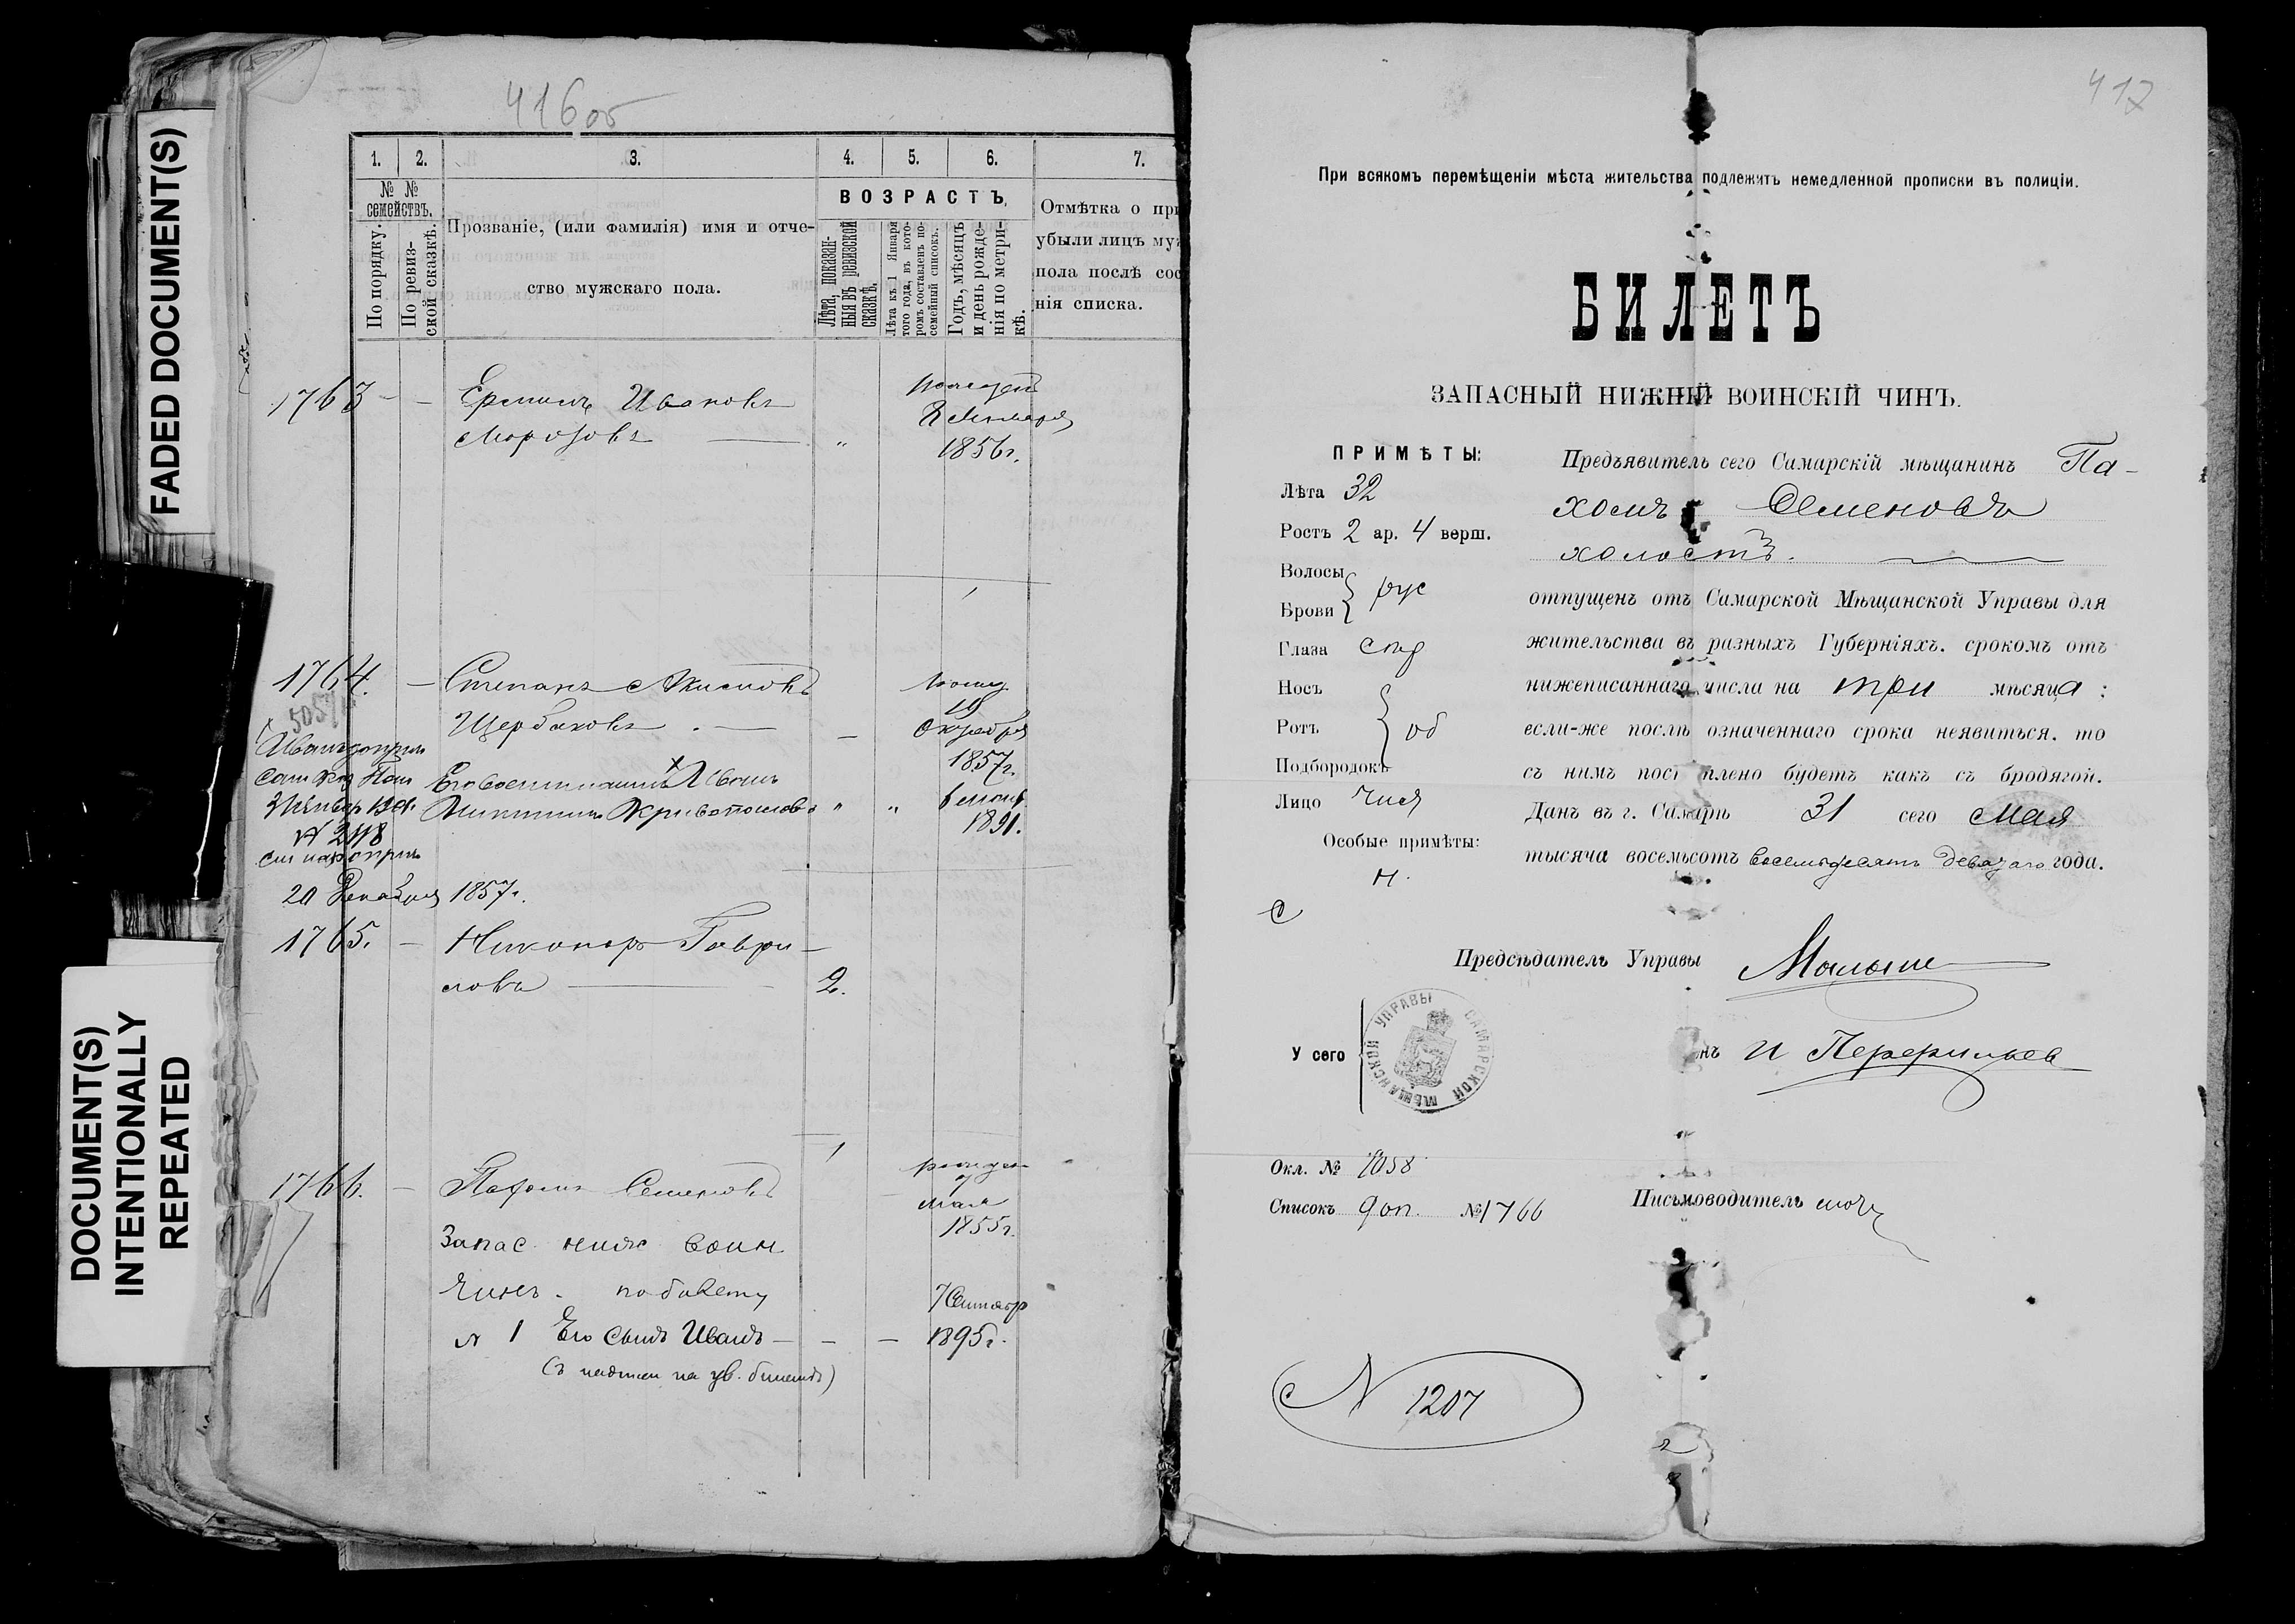 FADED DOCUMENT(S)
DOCUMENT(S)
INTENTIONALLY
REPEATED
416 об
1. 2. 3. 4. 5. 6. 7.
№ №
семействъ.
По порядку.
По ревиз-
ской сказкѣ.
Прозваніе, (или фамилія) имя и отче-
ство мужскаго пола.
ВОЗРАСТЪ,
Лѣта, показан-
ныя въ ревизской
сказкѣ.
Лѣта къ 1 Января
того года, въ кото-
ромъ составленъ по-
семейный списокъ.
Годъ, мѣсяцъ
и день рожде-
нія по метри-
кѣ.
Отмѣтка о при
убыли лицъ муж
пола послѣ сос
нія списка.
1763 - - Ивановъ
Морозовъ — " 1856г.
1764. - Степанъ
Щербаковъ . — - Октября
1857г.
Иванъ
" " 1891.
№ 2418
20 Декабря 1857г.
1765. - Никаноръ Гаври-
ловъ — 2.
1766. - Пахомъ Семеновъ
7 Мая
1855г.
Запас. нижн. воин.
чинъ. по билету
№ 1 Его сынъ Иванъ - - - 7 Сентябр 1895г.
417
При всякомъ перемѣщеніи мѣста жительства подлежитъ немедленной прописки въ полиціи.
БИЛЕТЪ
ЗАПАСНЫЙ НИЖНІЙ ВОИНСКІЙ ЧИНЪ.
ПРИМѢТЫ:
Лѣта 32
Ростъ 2 ар. 4 верш.
Волосы
Брови } рус
Глаза сѣр
Носъ
Ротъ } об
Подбородокъ
Лицо чист
Особые примѣты:
н.
Предъявитель сего Самарскій мѣщанинъ Па-
хомъ Семеновъ
холостъ.
отпущенъ отъ Самарской Мѣщанской Управы для
жительства въ разныхъ Губерніяхъ. срокомъ отъ
нижеписаннаго числа на три мѣсяца;
если-же послѣ означеннаго срока неявиться. то
съ нимъ пост плено будетъ какъ съ бродягой.
Данъ въ г. Самарѣ 31 сего Мая
тысяча восемьсотъ восемьдесятъ девятаго года.
С
Предсѣдатель Управы
У сего
САМАРСКОЙ МѢЩАНСКОЙ УПРАВЫ
нъ И
Окл. № 4058
Списокъ доп. № 1766
Письмоводитель
№ 1207